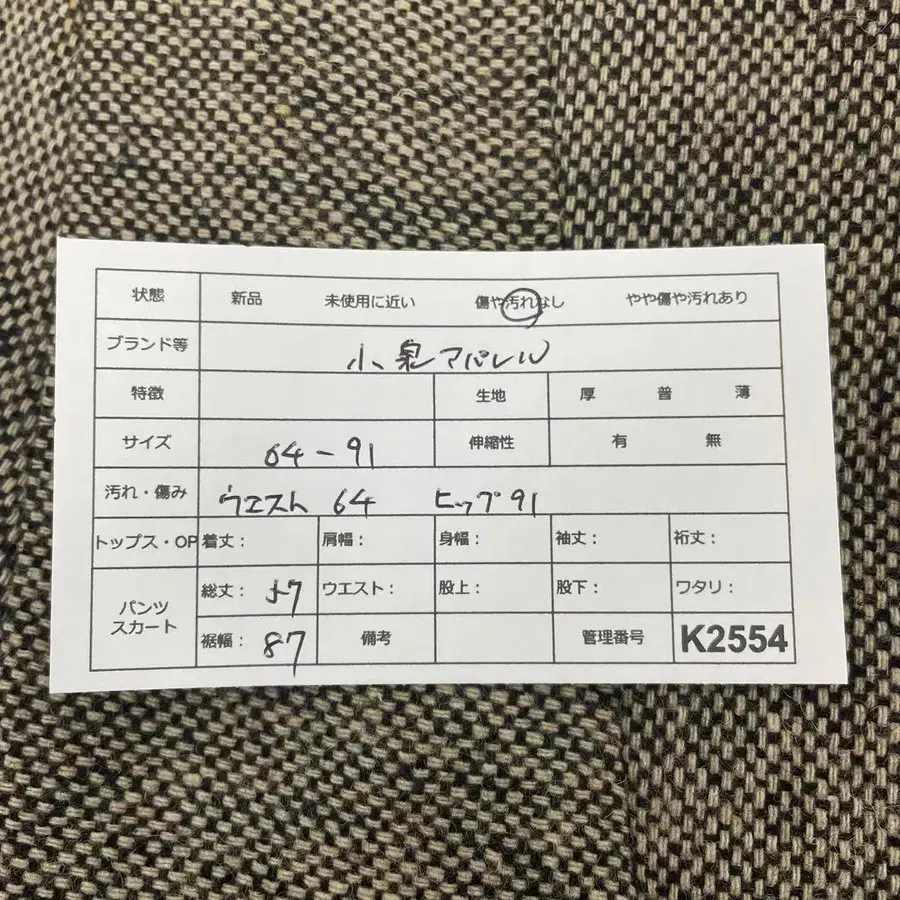 状態 新品 未使用に近い 傷や汚れなし やや傷や汚れあり
ブランド等 小泉アパレル
特徴 生地 厚 普 薄
サイズ 64-91 伸縮性 有 無
汚れ・傷み ウエスト 64 ヒップ 91
トップス・OP 着丈: 肩幅: 身幅: 袖丈: 裄丈:
パンツ
スカート
総丈: 57 ウエスト: 股上: 股下: ワタリ:
裾幅: 87 備考 管理番号 K2554